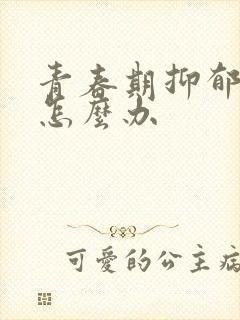 青春期抑郁
怎麼办
可愛的公主病